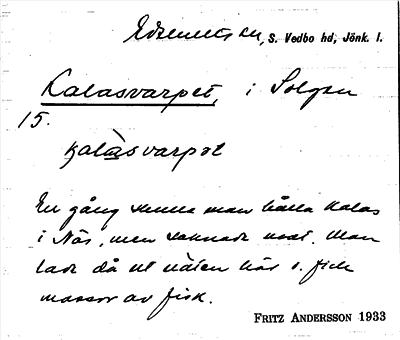 Edshults sn, S. Vedbo hd, Jönk. l.
Kalasvarpet, i Solgen
15.
kalàsvarpət
En gång skulle man hålla kalas
i Näs, men saknade mat. Man
lade då ut näten här o. fick
massor av fisk.
FRITZ ANDERSSON 1933